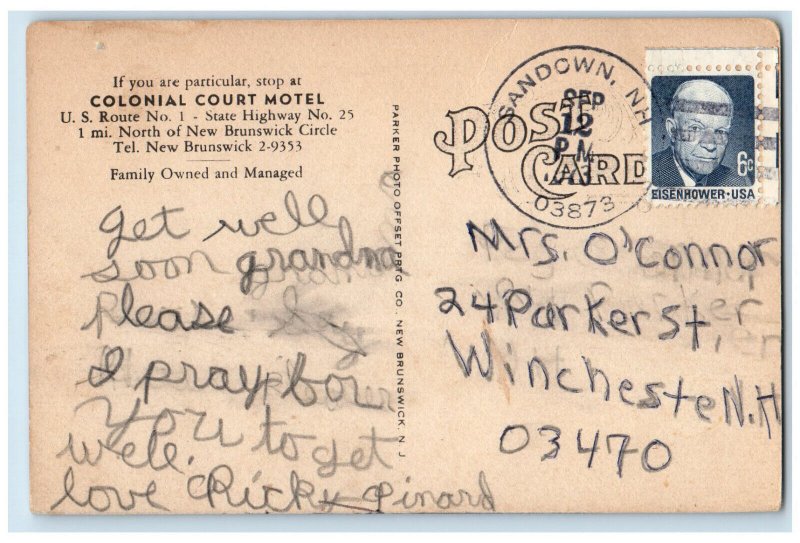 If you are particular, stop at
COLONIAL COURT MOTEL
U. S. Route No. 1 - State Highway No. 25
1 mi. North of New Brunswick Circle
Tel. New Brunswick 2-9353
Family Owned and Managed
get well
soon grandma
please
I pray for
you to get
well.
love Ricky Pinard
PARKER PHOTO OFFSET PRTG. CO., NEW BRUNSWICK, N. J.
POST CARD
SANDOWN, NH
SEP
12
P M
03873
6c
EISENHOWER·USA
Mrs. O'Connor
24 Parker St,
Wincheste N.H
03470